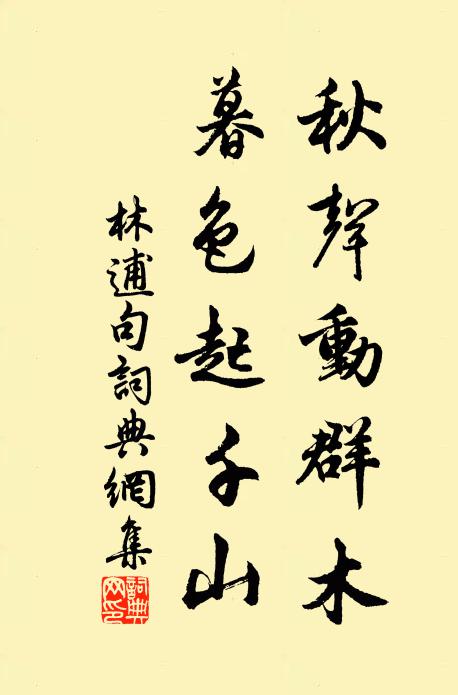 秋聲動群木
暮色起千山
林逋句詞典網集
詞典網印